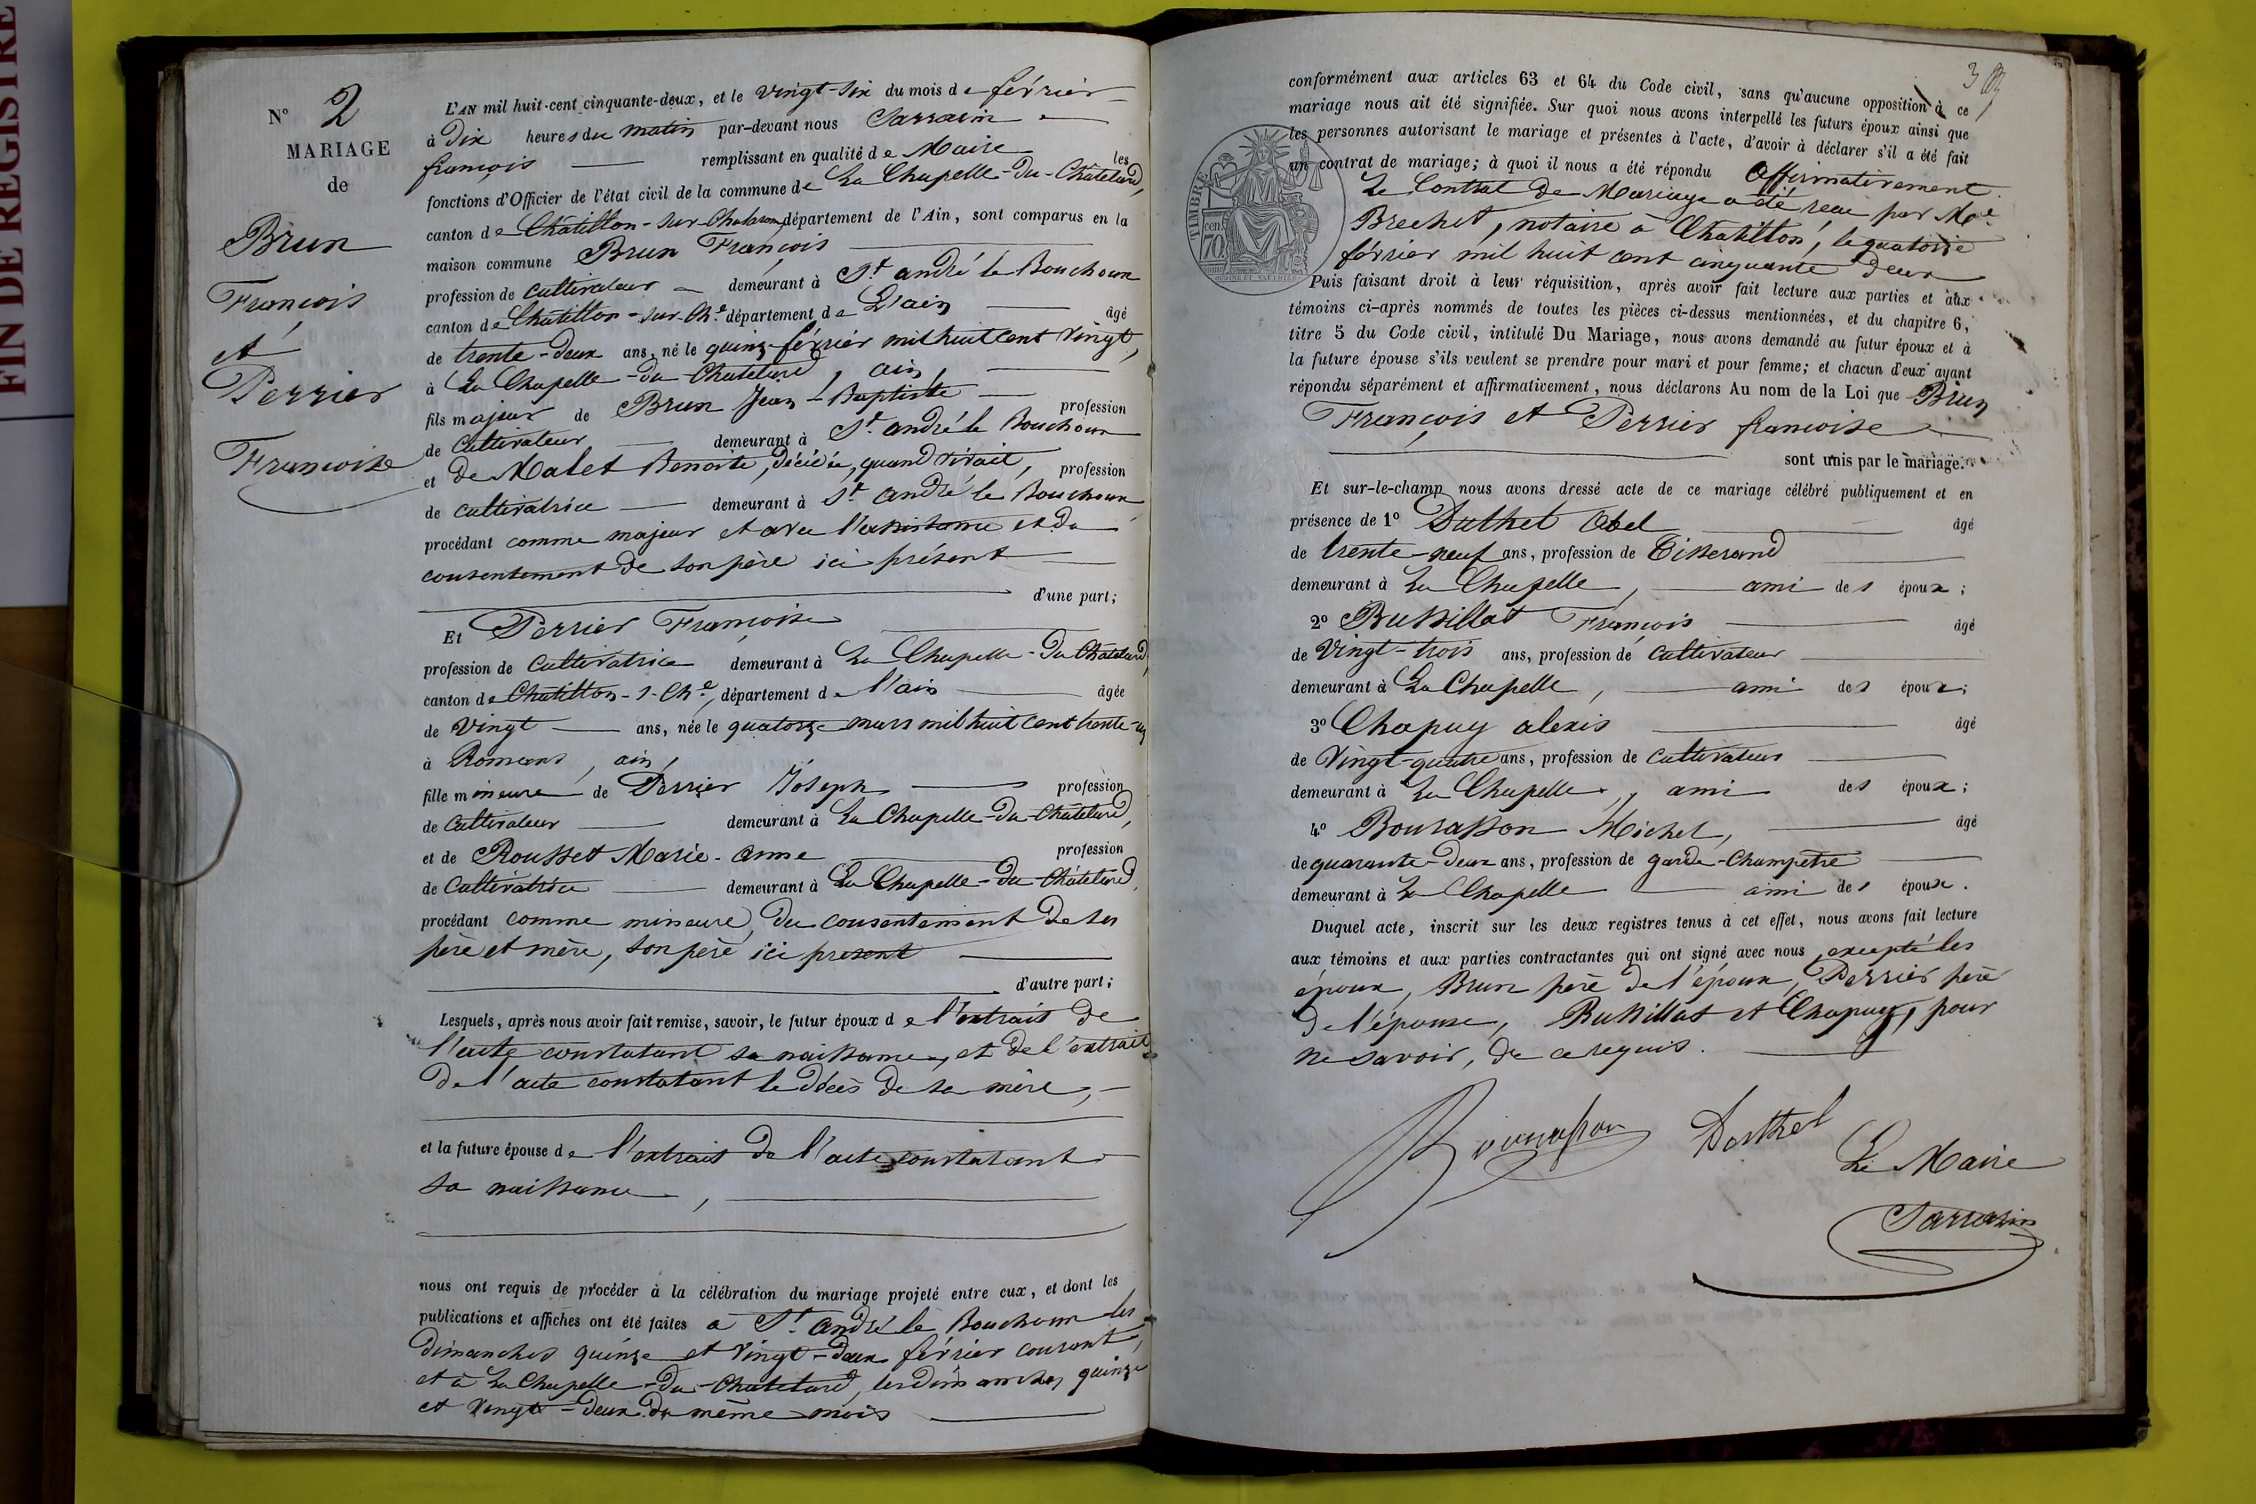 FIN DE REGISTRE
N° 2
MARIAGE
de
Brun
François
et
Perrier
Françoise
L'AN mil huit-cent cinquante-deux, et le vingt-six du mois de février
à dix heures du matin par-devant nous Sarrasin
françois remplissant en qualité de Maire les
fonctions d'Officier de l'état civil de la commune de La Chapelle-Du-Châtelard,
canton de Châtillon-sur-Chalaronne département de l'Ain, sont comparus en la
maison commune Brun François
profession de cultivateur demeurant à St andré le Bouchoux
canton de Châtillon-sur-Ch.e département de L'ain âgé
de trente-deux ans, né le quinze février mil huit cent vingt,
à La Chapelle-du-Chatelard, ain,
fils majeur de Brun Jean-Baptiste profession
de Cultivateur demeurant à St andré le Bouchoux
et de Malet Benoite, décédée, quand vivait, profession
de cultivatrice demeurant à St andré le Bouchoux
procédant comme majeur et avec l'assistance et du
consentement de son père ici présent
d'une part;
Et Perrier Françoise
profession de Cultivatrice demeurant à La Chapelle-du-Châtelard,
canton de Châtillon-s-Ch.e, département de l'ain âgée
de vingt ans, née le quatorze mars mil huit cent trente-un
à Romans, ain,
fille mineure de Perrier Joseph profession
de Cultivateur demeurant à La Chapelle-du-Châtelard,
et de Rousset Marie-anne profession
de Cultivatrice demeurant à La Chapelle-du-Châtelard,
procédant comme mineure, du consentement de ses
père et mère, son père ici present
d'autre part;
Lesquels, après nous avoir fait remise, savoir, le futur époux de l'extrait de
l'acte constatant sa naissance, et de l'extrait
de l'acte constatant le décès de sa mère,
et la future épouse de l'extrait de l'acte constatant
sa naissance,
nous ont requis de procéder à la célébration du mariage projeté entre eux, et dont les
publications et affiches ont été faites a St andré le Bouchoux les
dimanches quinze et vingt-deux février courant,
et à La Chapelle-du-Chatelard, les dimanches quinze
et vingt-deux du même mois
3
conformément aux articles 63 et 64 du Code civil, sans qu'aucune opposition à ce
mariage nous ait été signifiée. Sur quoi nous avons interpellé les futurs époux ainsi que
les personnes autorisant le mariage et présentes à l'acte, d'avoir à déclarer s'il a été fait
un contrat de mariage; à quoi il nous a été répondu Affirmativement.
Le Contrat de Mariage a été reçu par Me
Brechet, notaire à Chatillon, le quatorze
février mil huit cent cinquante deux
TIMBRE
70 cen.
Puis faisant droit à leur réquisition, après avoir fait lecture aux parties et aux
témoins ci-après nommés de toutes les pièces ci-dessus mentionnées, et du chapitre 6,
titre 5 du Code civil, intitulé Du Mariage, nous avons demandé au futur époux et à
la future épouse s'ils veulent se prendre pour mari et pour femme; et chacun d'eux ayant
répondu séparément et affirmativement, nous déclarons Au nom de la Loi que Brun
François et Perrier françoise
sont unis par le mariage.
Et sur-le-champ nous avons dressé acte de ce mariage célébré publiquement et en
présence de 1° Duthel Abel âgé
de trente-neuf ans, profession de Tisserand
demeurant à La Chapelle, ami des époux;
2° Bussillat François âgé
de Vingt-trois ans, profession de cultivateur
demeurant à La Chapelle, ami des époux;
3° Chapuy alexis âgé
de Vingt-quatre ans, profession de cultivateur
demeurant à La Chapelle, ami des époux;
4° Bourasson Michel, âgé
de quarante-deux ans, profession de garde-Champetre
demeurant à La Chapelle ami des époux.
Duquel acte, inscrit sur les deux registres tenus à cet effet, nous avons fait lecture
aux témoins et aux parties contractantes qui ont signé avec nous, excepté les
époux, Brun père de l'époux, Perrier père
de l'épouse, Bussillat et Chapuy, pour
ne savoir, de ce requis.
Bourasson Dosthel
Le Maire
Sarrasin